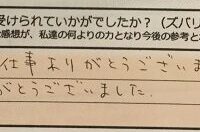 受けられていかがでしたか？（ズバリ
感想が、私達の何よりの力となり今後の参考と
仕事ありがとうございま
がとうございました.